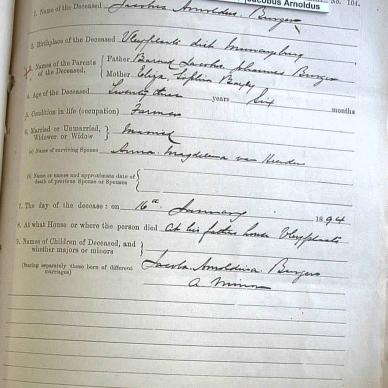 Jacobus Arnoldus
No. 104.
1. Name of the Deceased Jacobus Arnoldus Burger
2. Birthplace of the Deceased Vleyplaats dist
3. Names of the Parents of the Deceased. { Father Barend Jacobus Johannes Burger
Mother Eliza Sophia
4. Age of the Deceased Twenty three years Six months
5. Condition in life (occupation) Farmer
6. Married or Unmarried, Widower or Widow } Married
(a) Name of surviving Spouse Anna Magdalena van
(b) Name or names and approximate date of death of previous Spouse or Spouses
7. The day of the decease: on 16th January 1894
8. At what House or where the person died At his fathers house Vleyplaats
9. Names of Children of Deceased, and whether majors or minors
(Stating separately those born of different marriages)
Jacoba Arnoldina Burger
a Minor